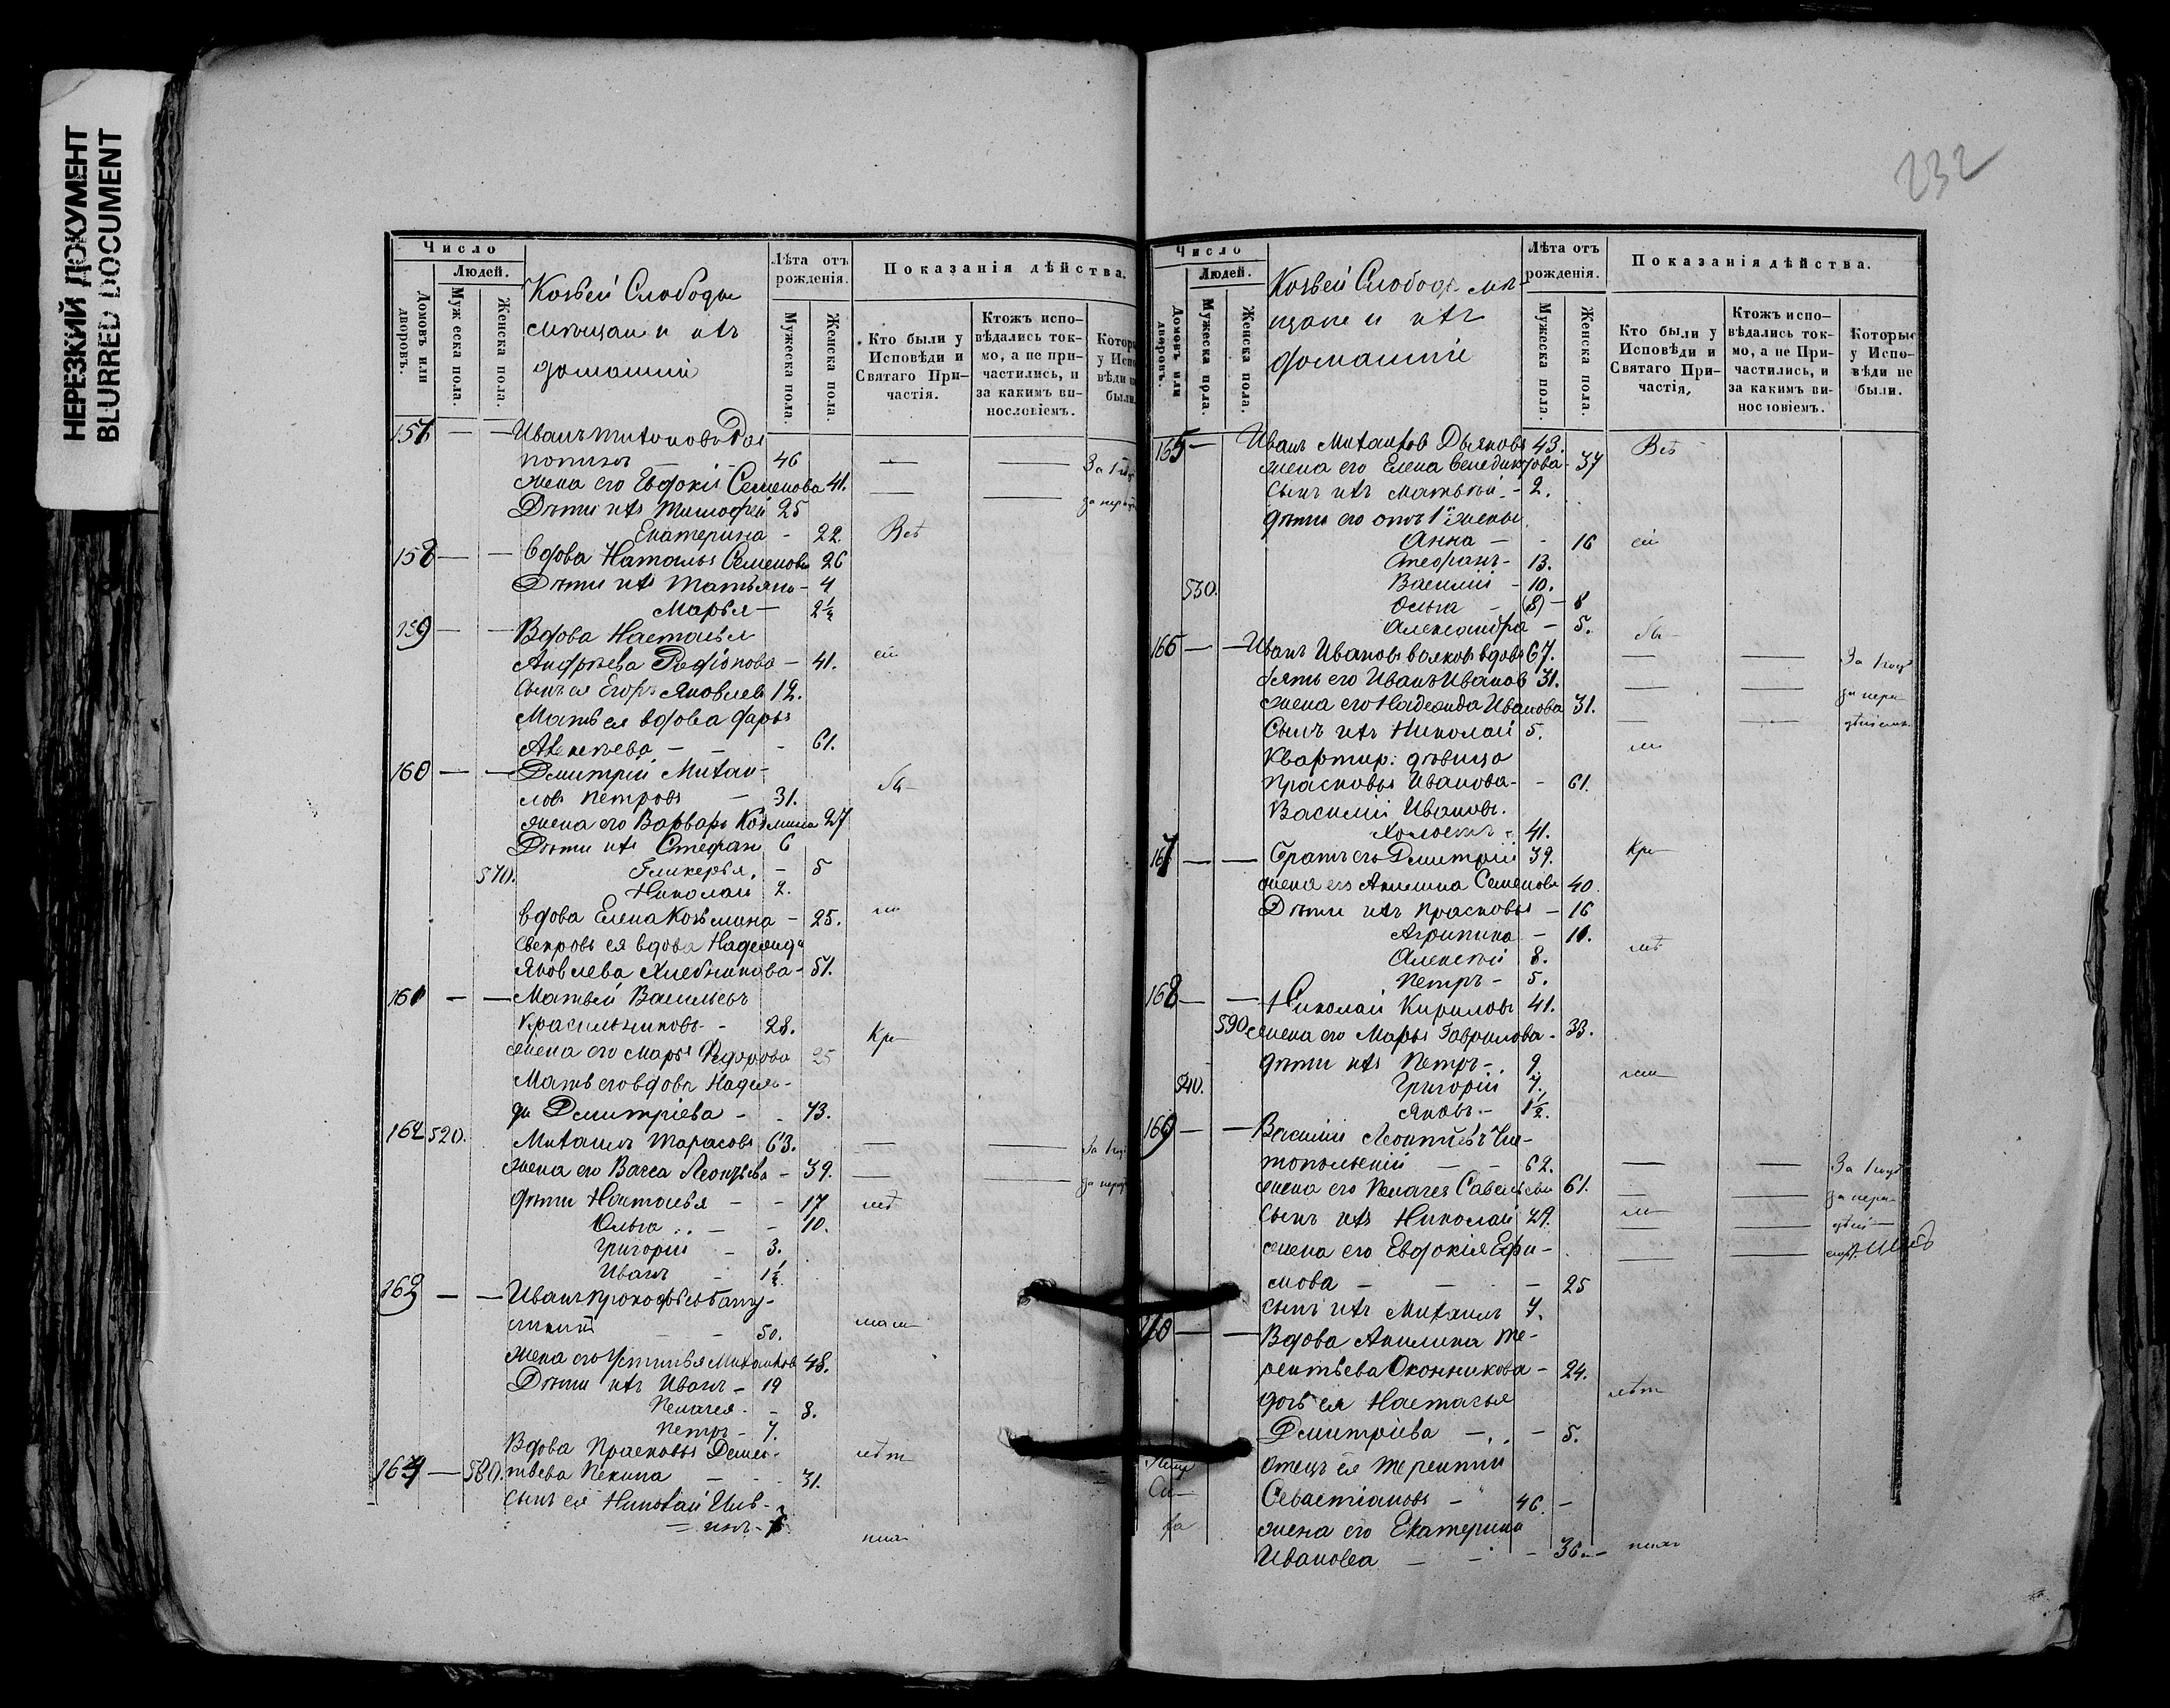 НЕРЕЗКИЙ ДОКУМЕНТ
BLURRED DOCUMENT
Число
Людей.
Домовъ или дворовъ.
Мужеска пола.
Женска пола.
Козьей Слободы
мѣщан и ихъ
домашніи
Лѣта отъ рожденія.
Мужеска пола.
Женска пола.
Показанія дѣйства.
Кто были у Исповѣди и Святаго При-частія.
Ктожъ испо-вѣдались ток-мо, а не при-частились, и за какимъ ви-нословіемъ.
Котор
у Испо
вѣди н
были.
157 — — Иванъ Тихоновъ
46 — — За
жена его Евдокія Семенова 41. — —
Дѣти ихъ Тимофей 25
Екатерина - 22. Всѣ
158 — — Вдова Наталья Семенова 26
Дѣти ихъ Татьяна - 4
Марья — 2½
159 — — Вдова Настасья
Андреева Родіонова — 41. сіи
Сынъ ея Егоръ Яковлевъ 12.
Мать ея вдова Дарья
Алексѣева — — - 61.
160 — — Дмитрій Михаи-
ловъ Петровъ — 31. бы-
жена его Варвара Козмина 27
Дѣти ихъ Стефанъ 6
570. Гликерья, - 5
Николай 2.
вдова Елена Козьмина - 25. ли
Свекровь ея вдова Надежда
Яковлева Хлебникова - 51.
161 — — Матвѣй Васильевъ
Красильниковъ - 28. Кре-
жена его Марья Федорова 25
Мать его вдова Надеж-
да Дмитріева - - 73.
162 520. Михаилъ Тарасовъ 63. — — За
жена его Васса Леонтьева - 39. — —
дѣти Наталья - - 17 лѣт
Ольга - - 10.
Григорій - 3.
Иванъ - 1½.
163 — — Иванъ Прокофьевъ
50.
жена его Устинья Михайлова 48.
Дѣти ихъ Иванъ - 19
Пелагея - - 8.
Петръ - 7.
Вдова Прасковья Демен- лѣт
164 — 580. тьева Пекина - - 31.
Сынъ ея Николай
232
Число
Людей.
Домовъ или дворовъ.
Мужеска пола.
Женска пола.
Козьей Слободы мѣ-
щане и ихъ
домашніи
Лѣта отъ рожденія.
Мужеска пола.
Женска пола.
Показанія дѣйства.
Кто были у Исповѣди и Святаго При-частія,
Ктожъ испо-вѣдались ток-мо, а не При-частились, и за какимъ ви-нословіемъ.
Которые у Испо-вѣди не были.
165 — Иванъ Михайловъ Дьяковъ 43. Всѣ
жена его Елена Венедиктова - 37
Сынъ ихъ Матвѣй - 2.
дѣти его отъ 1й жены
Анна — - 16 сіи
Стефанъ - 13.
530. Василій - 10.
Ольга - (8) — 8
Александра - 5. бы-
166 — — Иванъ Ивановъ вдовъ 67. — — За 1
зять его Иванъ Ивановъ 31. — —
жена его Надежда Иванова 31. — —
Сынъ ихъ Николай 5. ли
Квартир: дѣвица
Прасковья Иванова - - 61.
Василій Ивановъ
41.
167 — — братъ его Дмитрій 39. Кре-
жена его Акилина Семенова 40.
Дѣти ихъ Прасковья - 16
Агрипина - 10.
Алексѣй 8. лѣт
Петръ - 5.
168 — — Николай Кириловъ 41.
590 жена его Марья Гаврилова - 33.
дѣти ихъ Петръ - 9
540. Григорій 7.
Яковъ - 1½.
169 — — Василій Леонтьевъ Чис-
топольскій — - 62. — — За 1
жена его Пелагея Савельева 61. — —
Сынъ ихъ Николай 29. — —
жена его Евдокія Ефи- — —
мова — — — 25
сынъ ихъ Михаилъ 7.
— — Вдова Акилина Те-
рентьева Оконникова - 24.
дочь ея Настасья лѣт
Дмитріева — - 5.
Отецъ ея Терентій
Севастіановъ - 46. -
жена его Екатерина
Иванова — - - 36.